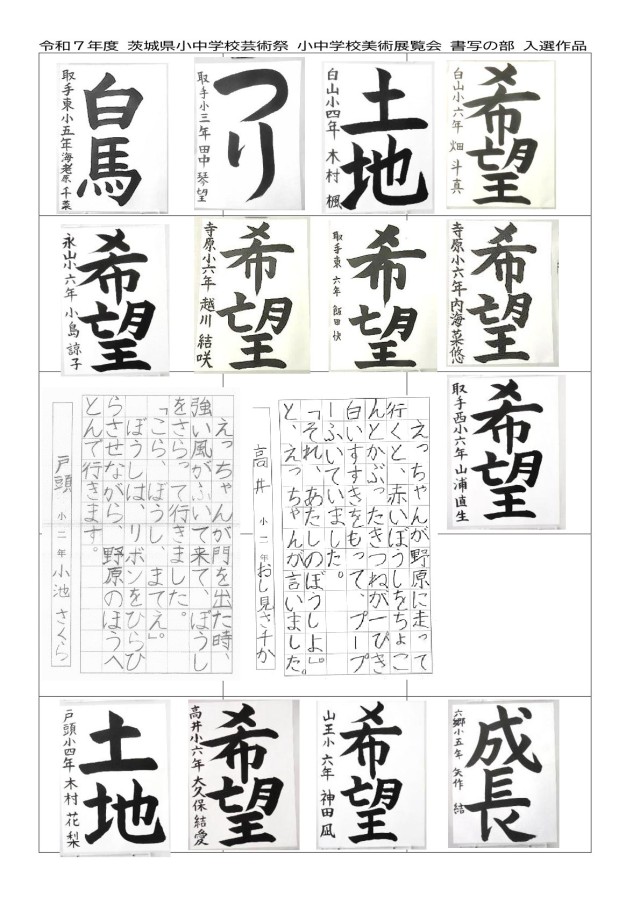 令和７年度 茨城県小中学校芸術祭 小中学校美術展覧会 書写の部 入選作品
白馬
取手東小五年海老原千菜
つり
取手小三年田中琴望
土地
白山小四年木村楓
希望
白山小六年畑斗真
希望
永山小六年小島諒子
希望
寺原小六年越川結咲
希望
取手東六年飯田快
希望
寺原小六年内海菜悠
えっちゃんが門を出た時、
強い風がふいて来て、ぼうし
をさらって行きました。
「こら、ぼうし、まてえ」。
ぼうしは、リボンをひらひ
らさせながら、野原のほうへ
とんで行きます。
戸頭小二年小池さくら
えっちゃんが野原に走って
行くと、赤いぼうしをちょこ
んとかぶったきつねが一ぴき
白いすすきをもって、プープ
ーふいていました。
「それ、あたしのぼうしよ」。
と、えっちゃんが言いました。
高井小二年おし見さ千か
希望
取手西小六年山浦直生
土地
戸頭小四年木村花梨
希望
高井小六年大久保結愛
希望
山王小六年神田凪
成長
六郷小五年矢作結